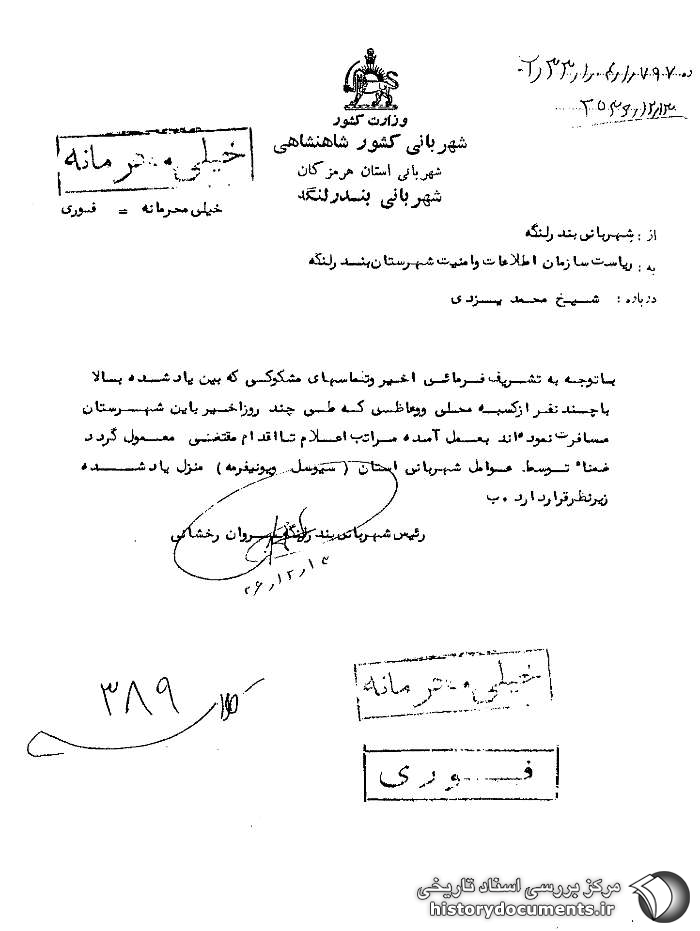 وزارت کشور
شهربانی کشور شاهنشاهی
شهربانی استان هرمزگان
شهربانی بندرلنگه
خیلی محرمانه
خیلی محرمانه = فوری
از : شهربانی بندرلنگه
به : ریاست سازمان اطلاعات وامنیت شهرستان بندرلنگه
درباره : شیخ محمد یزدی
باتوجه به تشریف فرمائی اخیر وتماسهای مشکوکی که بین یاد شده بالا
باچند نفر ازکسبه محلی ووعاظی که طی چند روزاخیر باین شهرستان
مسافرت نموده‌اند بعمل آمده مراتب اعلام تااقدام مقتضی معمول گردد
ضمناً توسط عوامل شهربانی استان (سیویل ویونیفرمه) منزل یاد شده
زیرنظرقراردارد .ب
رئیس شهربانی بندرلنگه سروان رخشانی
۳۸۹
خیلی محرمانه
فوری
مرکز بررسی اسناد تاریخی
historydocuments.ir